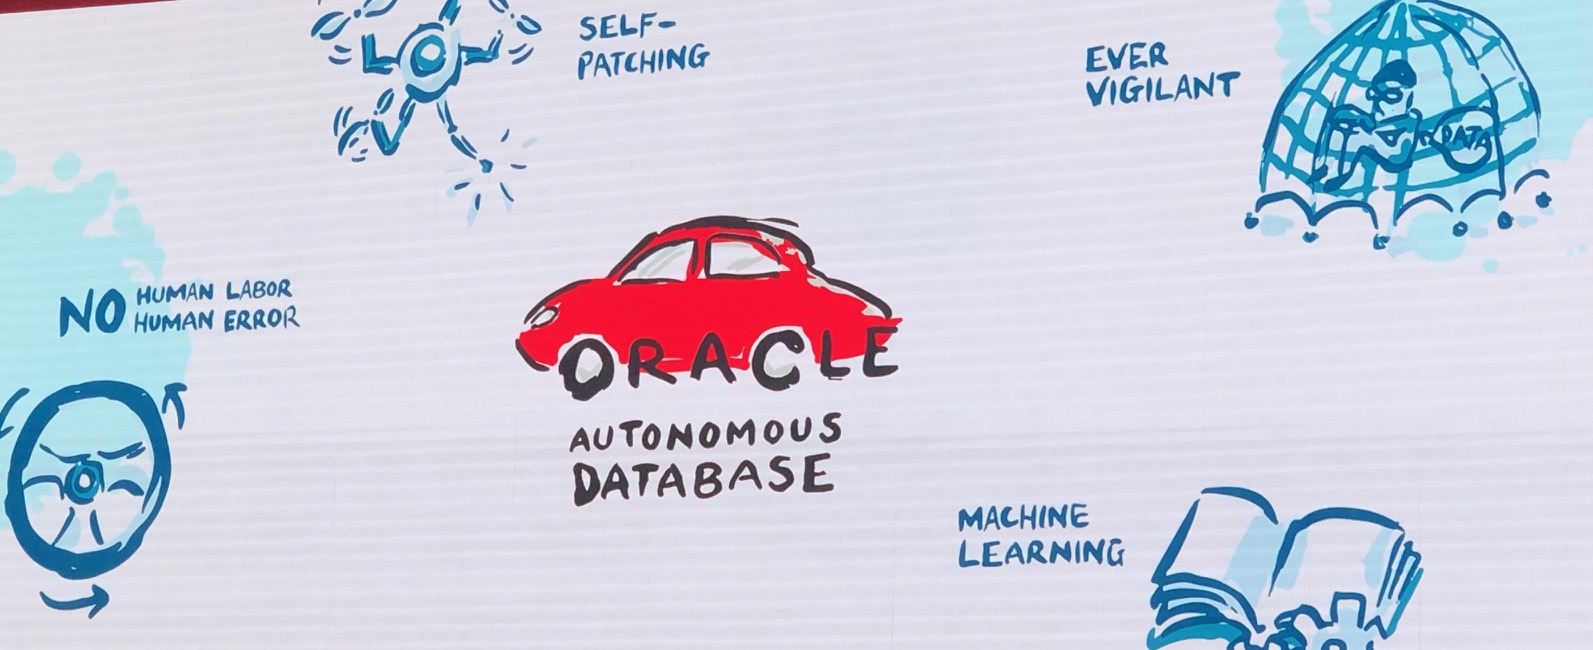 SELF-
PATCHING
EVER
VIGILANT
DATA
NO HUMAN LABOR
HUMAN ERROR
ORACLE
AUTONOMOUS
DATABASE
MACHINE
LEARNING